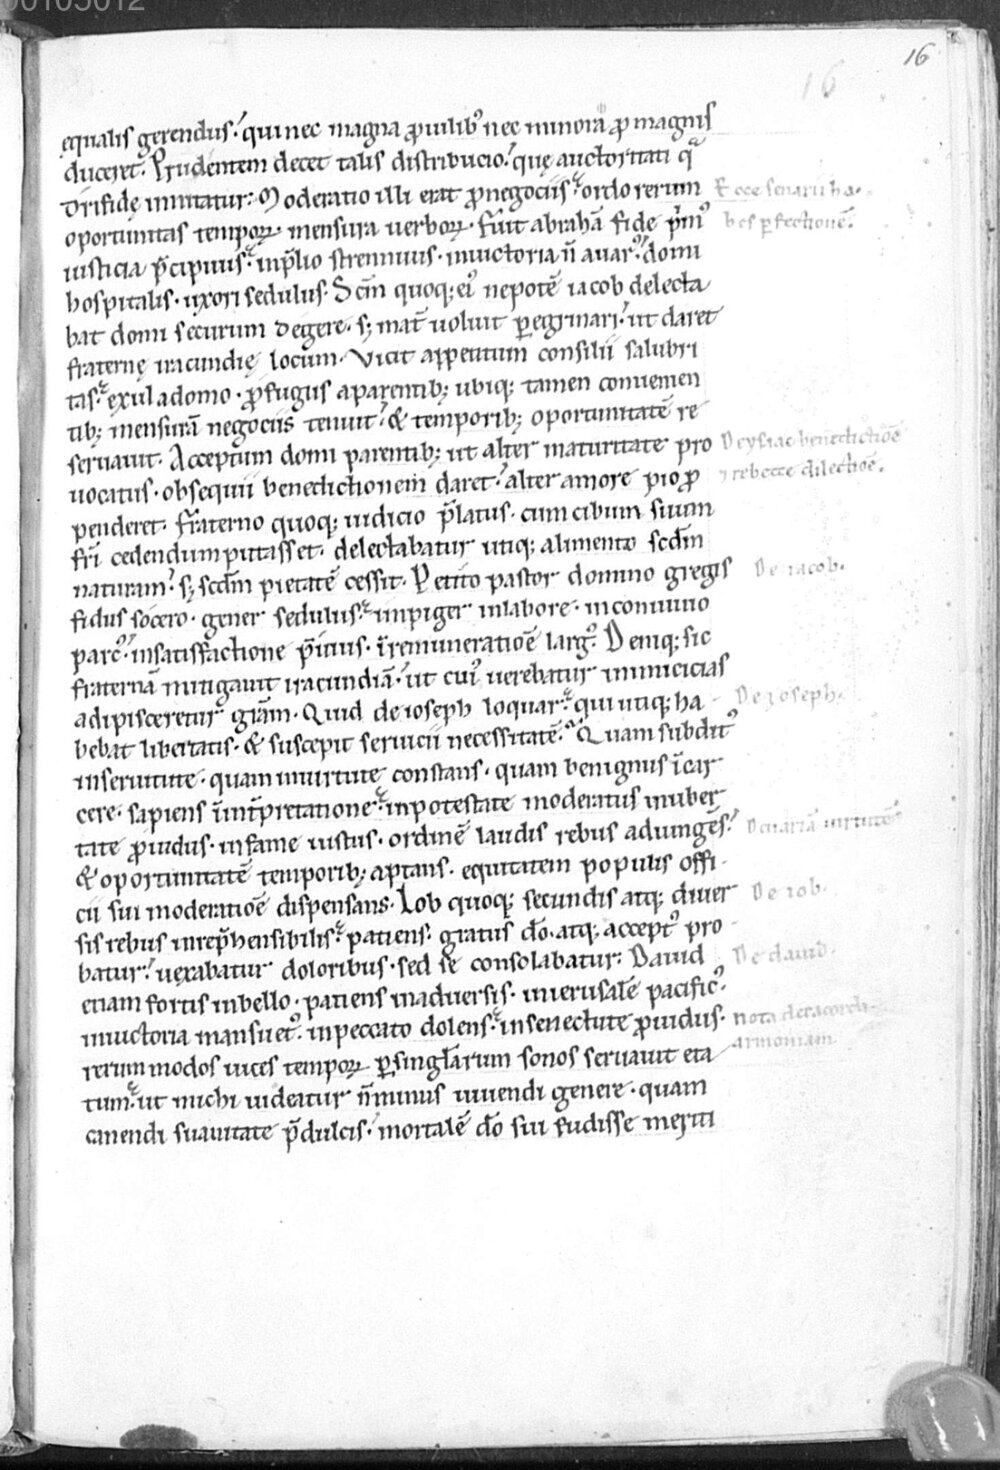 00105012
16
16
equalis gerendus. qui nec magna ꝓ uilibꝰ nec minora ꝓ magnis
duceret. Prudentem decet talis distribucio. quę auctoritati qͣ
drifidę imitatur. Moderatio illi erat ꝓ negociis. ordo rerum
Ecce senarii ha
oportunitas temporꝝ. mensura uerborꝝ. Fuit abrahā fide p̄mꝰ
bes ꝑfectionē.
iusticia p̄cipuus. in p̄lio strennuus. in uictoria n̄ auarꝰ. domi
hospitalis. uxori sedulus. Scm̄ quoq; eiꝰ nepotē iacob delecta
bat domi securum degere. s; mat̄ uoluit ꝑegrinari. ut daret
fraternę iracundię locum. Vicit appetitum consilii salubri
tas. exul a domo. ꝓfugus a parentib; ubiq; tamen conuenien
tib; mensurā negociis tenuit. & temporib; oportunitatē re
seruauit. Acceptum domi parentib; ut alter maturitate pro
De ysaac benedictiōe
uocatus. obsequii benedictionem daret. alter amore pio ꝓ
⁊ rebecce dilectiōe.
penderet. Fraterno quoq; iudicio p̄latus. cum cibum suum
fr̄i cedendum putasset. delectabatur utiq; alimento scdm̄
naturam. s; scdm̄ pietatē cessit. Petito pastor domino gregis
De iacob.
fidus socero. gener sedulus. impiger in labore. in conuiuio
parcꝰ. in satisfactione p̄uius. ī remuneratiōe largꝰ. Deniq; sic
fraternā mitigauit iracundiā. ut cuiꝰ uerebatur inimicicias
adipisceretur gr̄am. Quid de ioseph loquar. qui utiq; ha
De ioseph.
bebat libertatis. & suscepit seruicii necessitatē. Quam subditꝰ
in seruitute. quam in uirtute constans. quam benignus ī car
cere. sapiens ī int̄pretatione. in potestate moderatus in uber
tate ꝓuidus. in fame iustus. ordinē laudis rebus adiungēs.
& oportunitatē temporib; aptans. equitatem populis offi
cii sui moderatiōe dispensans. Iob quoq; secundis atq; diuer
De iob.
sis rebus inrep̄hensibilis. patiens. gratus dō. atq; acceptꝰ pro
batur. uexabatur doloribus. sed se consolabatur. Dauid
De dauid.
etiam fortis in bello. patiens in aduersis. in ierusalē pacificꝰ.
in uictoria mansuetꝰ. in peccato dolens. in senectute ꝓuidus.
nota
rerum modos uices temporꝝ ꝑ singl̄arum sonos seruauit eta
armoniam
tum. ut michi uideatur n̄ minus uiuendi genere. quam
canendi suauitate p̄dulcis. mortalē dō sui fudisse meriti